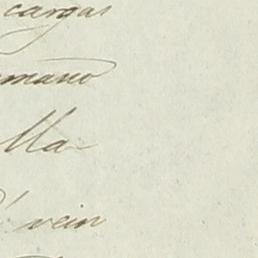 cargas
mano
lla
vein